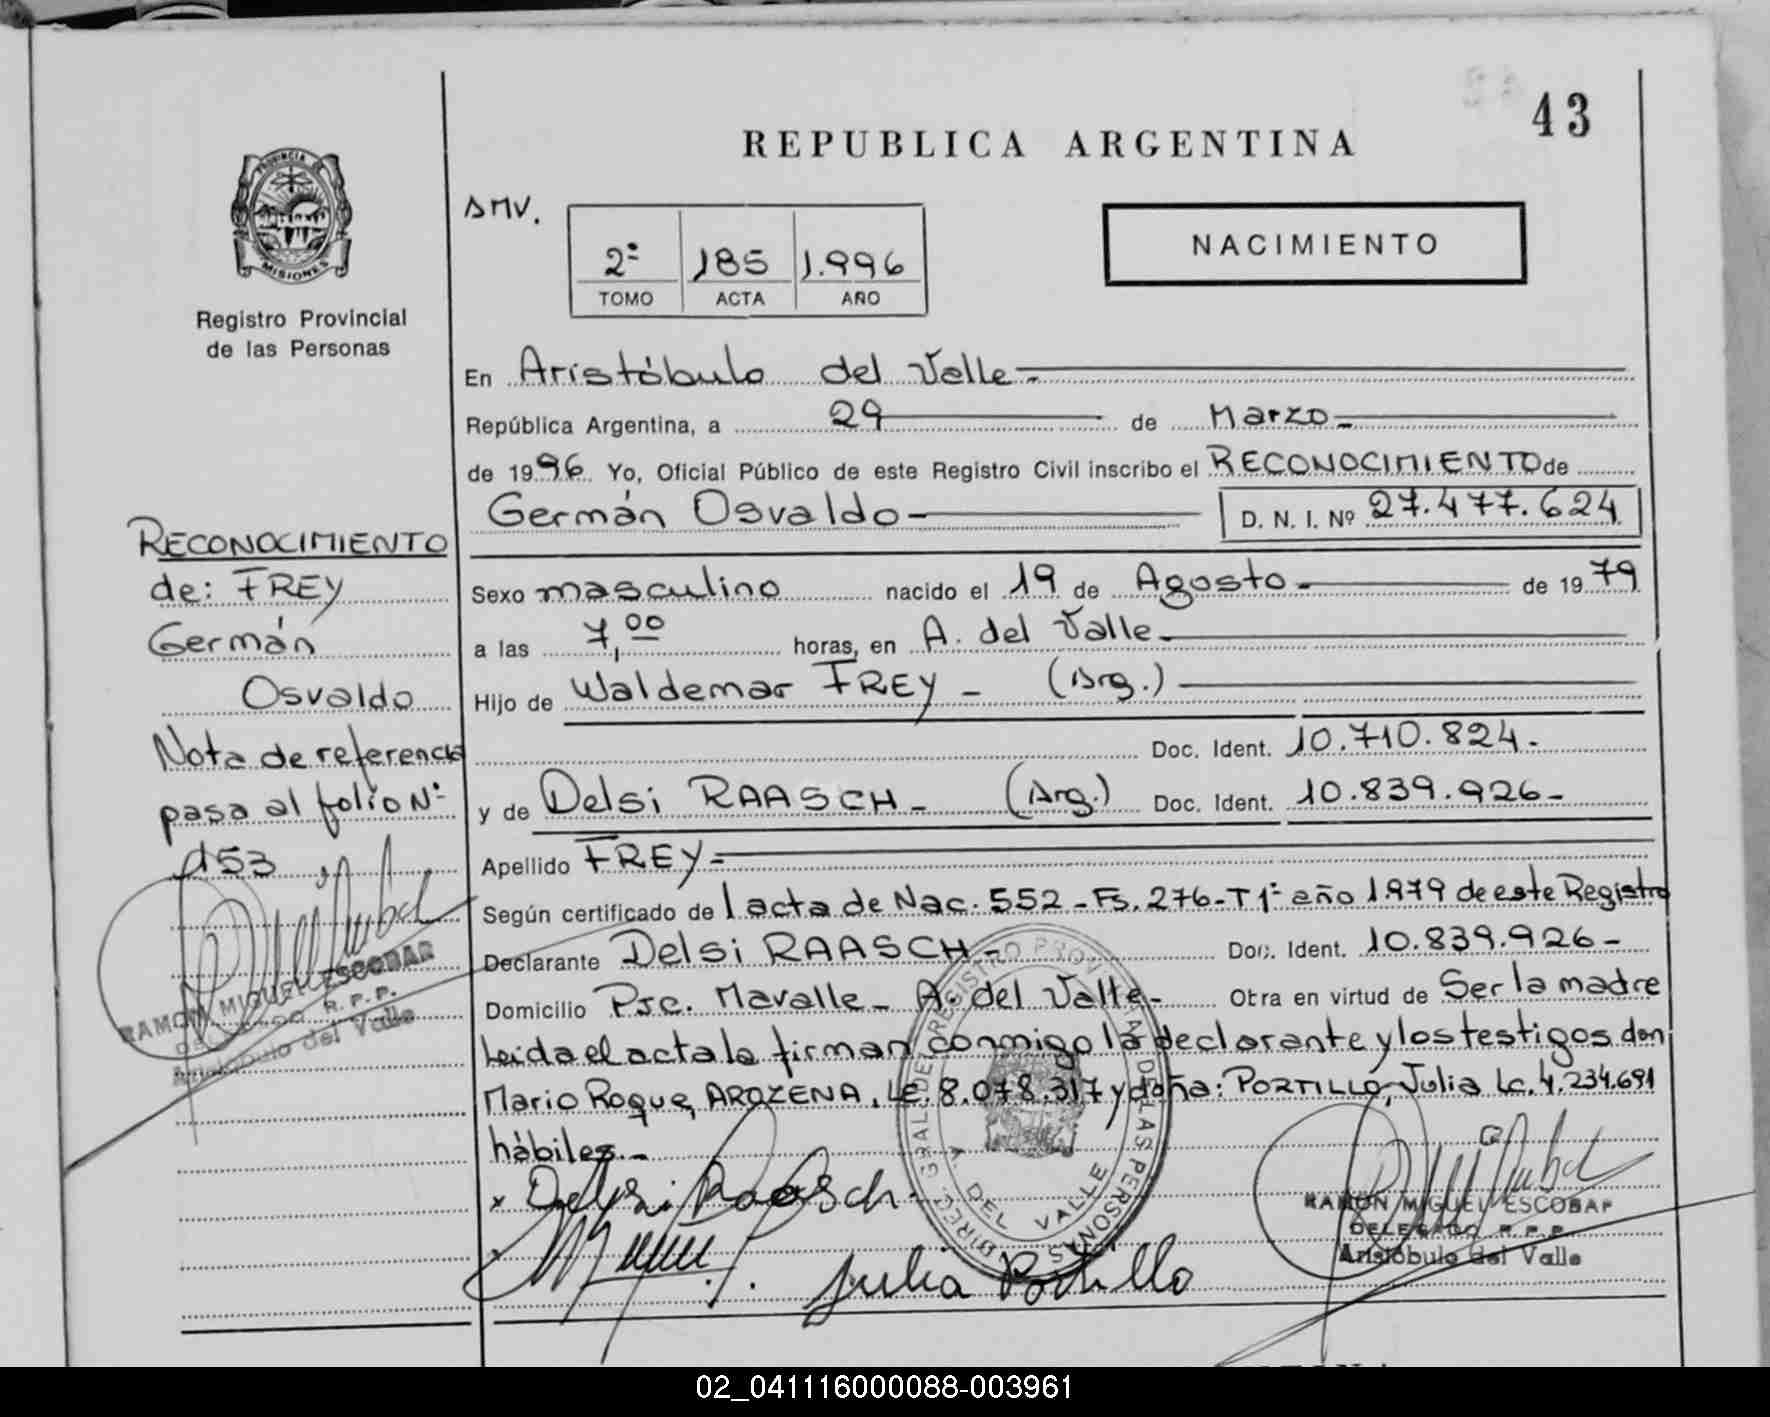 43
REPUBLICA ARGENTINA
PROVINCIA DE
MISIONES
Registro Provincial
de las Personas
2º 185 1.996
TOMO ACTA AÑO
NACIMIENTO
En Aristóbulo del Valle.
República Argentina, a 29 de Marzo
de 1996. Yo, Oficial Público de este Registro Civil inscribo el RECONOCIMIENTO de
Germán Osvaldo D. N. I. Nº 27.477.624
Sexo masculino nacido el 19 de Agosto de 1979
a las 7,00 horas, en A. del Valle.
Hijo de Waldemar FREY - (Arg.)
Doc. Ident. 10.710.824.
y de Delsi RAASCH - (Arg.) Doc. Ident. 10.839.926-
Apellido FREY-
Según certificado de l acta de Nac. 552 - Fs. 276 - T 1º año 1.979 de este Registro
Declarante Delsi RAASCH - Doc. Ident. 10.839.926-
Domicilio Pje. Mavalle - A. del Valle - Otra en virtud de Ser la madre
Leida el acta la firman conmigo la declarante y los testigos don
Mario Roque, AROZENA, LE. 8.078.317 y doña: PORTILLO, Julia Lc. 4.234.691
hábiles.-
Delsi Raasch
Julia Portillo
RAMON MIGUEL ESCOBAR
DELEGADO R.P.P.
Aristóbulo del Valle
RECONOCIMIENTO
de: FREY
Germán
Osvaldo
Nota de referencia
pasa al folio Nº
153
RAMON MIGUEL ESCOBAR
DELEGADO R.P.P.
Aristóbulo del Valle
DIREC. GRAL. DEL REGISTRO PROVINCIAL DE LAS PERSONAS
A. DEL VALLE
02_041116000088-003961